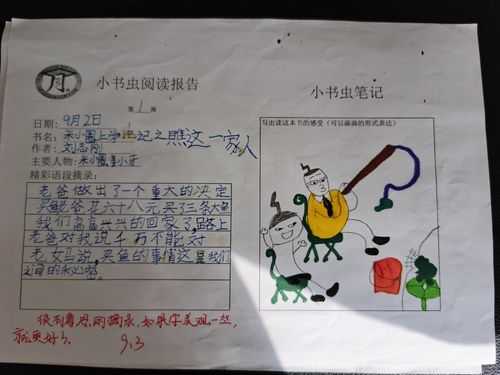 小书虫阅读报告
第1周
日期：9月2日
书名：米小圈上学记之瞧这一家人
作者：
主要人物：米小圈
精彩语段摘录：
老爸做出了一个重大的决定
花六十八元买了三条大鱼
我们高高兴兴的回家了路上
老爸对我说千万不能对
老妈说买鱼的事情这是我们
之间的秘密
很有意思的摘录，如果字美观一些，
就更好了。
9.3
小书虫笔记
写出读这本书的感受（可以画画的形式表达）